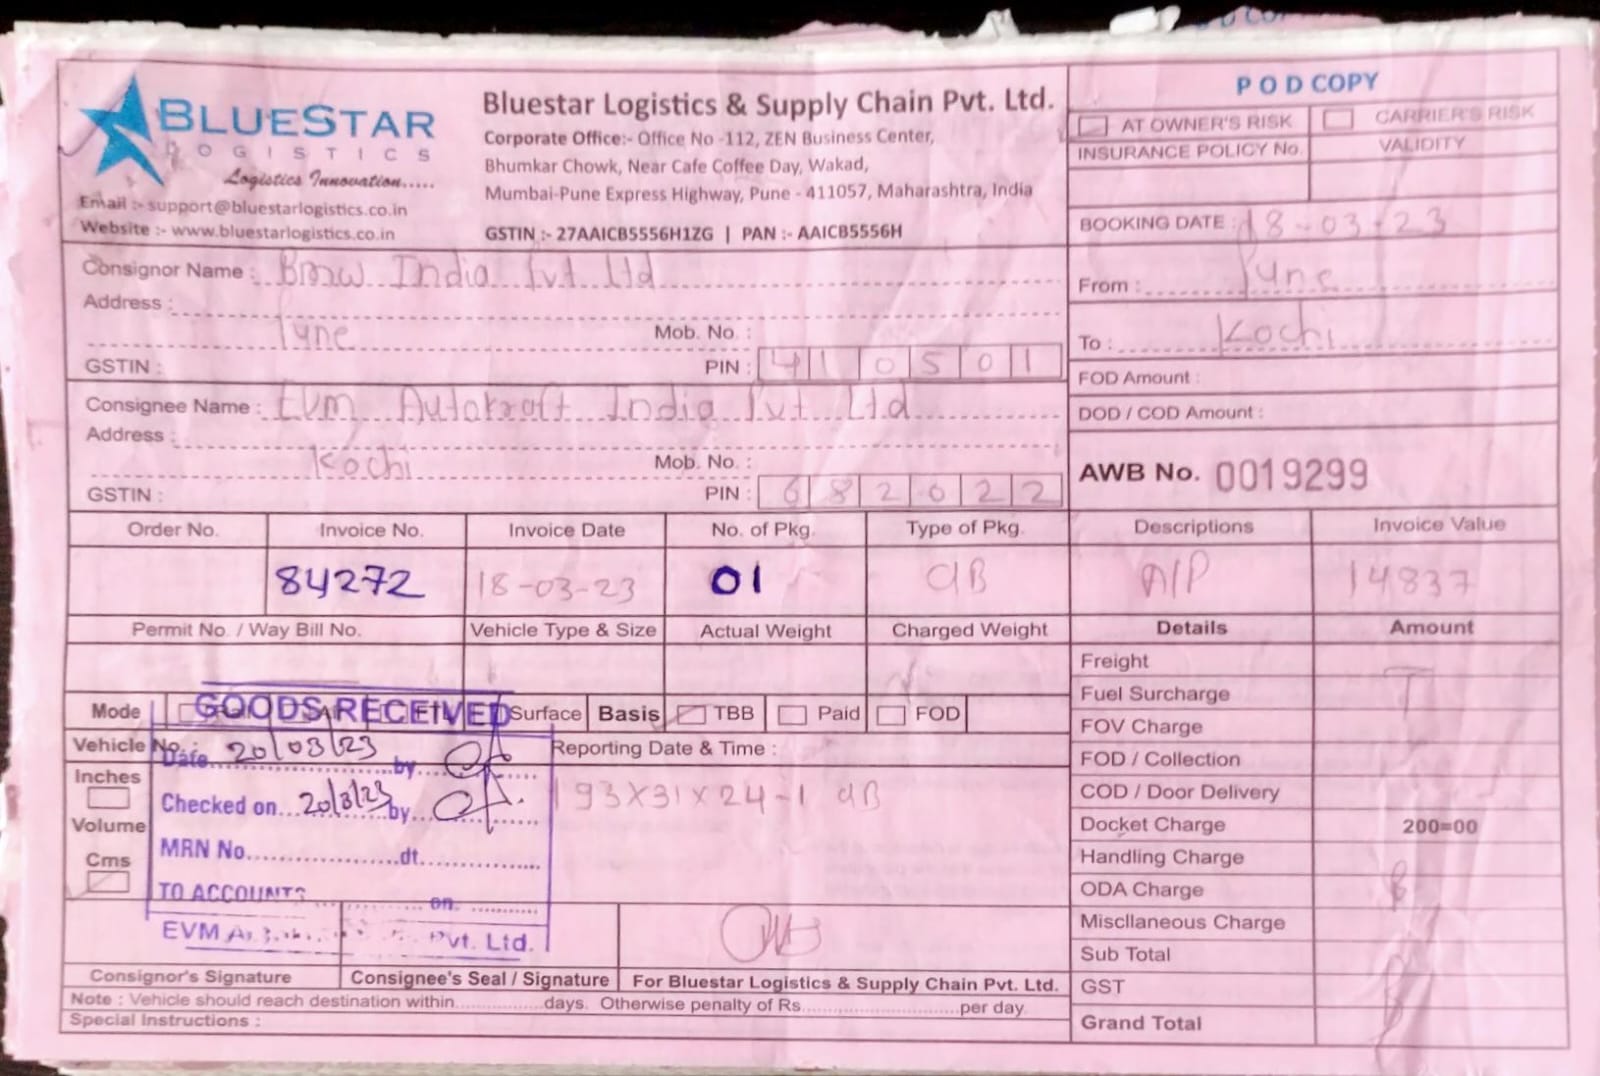 POD COPY
BLUESTAR
LOGISTICS
Logistics Innovation.....
Email :- support@bluestarlogistics.co.in
Website :- www.bluestarlogistics.co.in
Bluestar Logistics & Supply Chain Pvt. Ltd.
Corporate Office:- Office No -112, ZEN Business Center,
Bhumkar Chowk, Near Cafe Coffee Day, Wakad,
Mumbai-Pune Express Highway, Pune - 411057, Maharashtra, India
GSTIN :- 27AAICB5556H1ZG | PAN :- AAICB5556H
AT OWNER'S RISK CARRIER'S RISK
INSURANCE POLICY No. VALIDITY
BOOKING DATE : 18-03-23
From : Pune
To : Kochi
FOD Amount :
DOD / COD Amount :
AWB No. 0019299
Consignor Name : Bmw India Pvt Ltd
Address :
Pune Mob. No. :
GSTIN : PIN : 410501
Consignee Name : EVM Autokraft India Pvt Ltd
Address :
Kochi Mob. No. :
GSTIN : PIN : 682022
Order No. Invoice No. Invoice Date No. of Pkg. Type of Pkg. Descriptions Invoice Value
84272 18-03-23 01 CIB A/P 14837
Permit No. / Way Bill No. Vehicle Type & Size Actual Weight Charged Weight Details Amount
Freight
Fuel Surcharge
FOV Charge
FOD / Collection
COD / Door Delivery
Docket Charge 200=00
Handling Charge
ODA Charge
Miscllaneous Charge
Sub Total
GST
Grand Total
Mode FTL Surface Basis TBB Paid FOD
Vehicle No. : Reporting Date & Time :
Inches
Volume
Cms
193X31X24-1 CIB
GOODS RECEIVED
Date 20/03/23 by
Checked on 20/3/23 by
MRN No. dt.
TO ACCOUNTS on
EVM Pvt. Ltd.
Consignor's Signature Consignee's Seal / Signature For Bluestar Logistics & Supply Chain Pvt. Ltd.
Note : Vehicle should reach destination within days. Otherwise penalty of Rs. per day
Special Instructions :